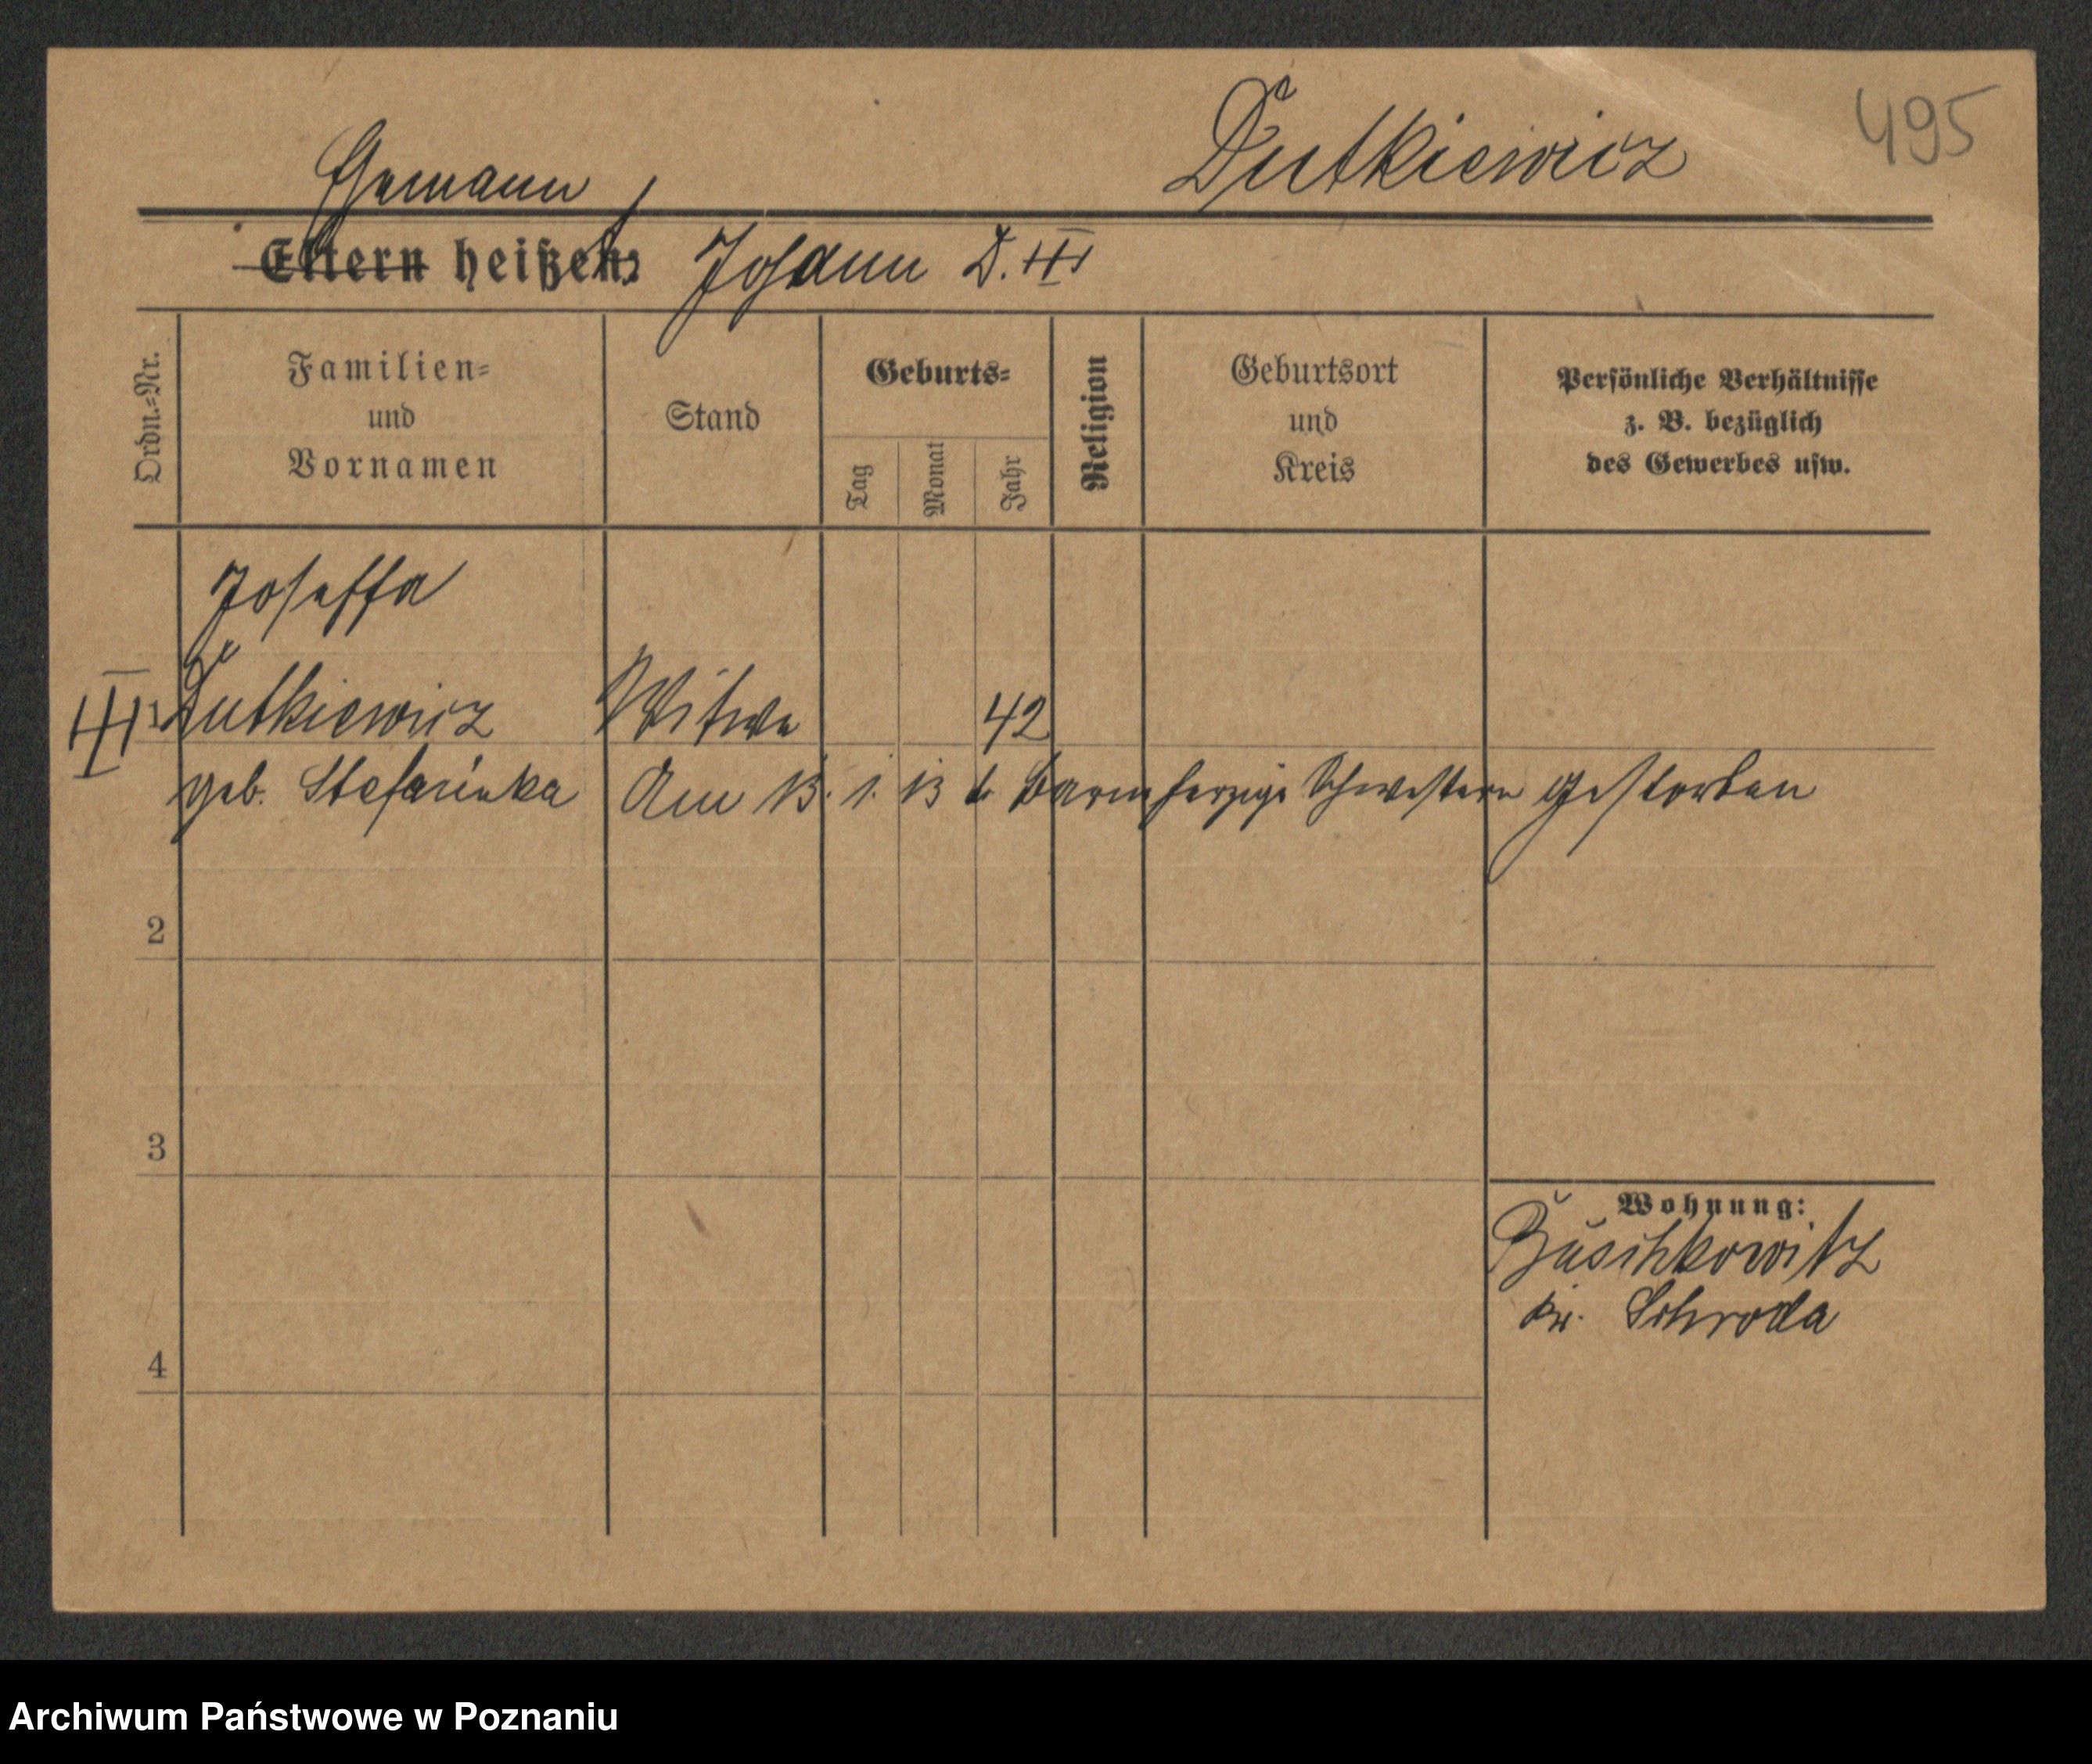 Dutkiewicz
495
Ehemann
Eltern heißen: Johann D. III
Ordn.=Nr.
Familien=
und
Vornamen
Stand
Geburts=
Tag
Monat
Jahr
Religion
Geburtsort
und
Kreis
Persönliche Verhältnisse
z. B. bezüglich
des Gewerbes usw.
Joseffa
III 1 Dutkiewicz Witwe 42
geb. Am 13. 1. 13 b. Barmherzige Schwestern gestorben
2
3
Wohnung:
Buschkowitz
Kr. Schroda
4
Archiwum Państwowe w Poznaniu